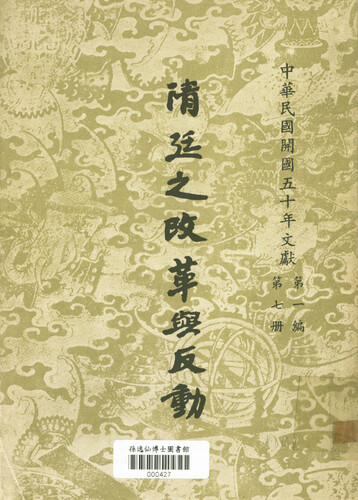 中華民國開國五十年文獻
第一編
第七册
清廷之改革與反動
孫逸仙博士圖書館
000427